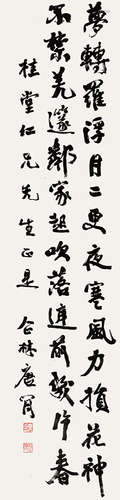 夢轉羅浮月二更夜寒風力損花神
不禁羌邃鄰家起吹落連前數片春
桂堂仁兄先生正是 谷林唐肎